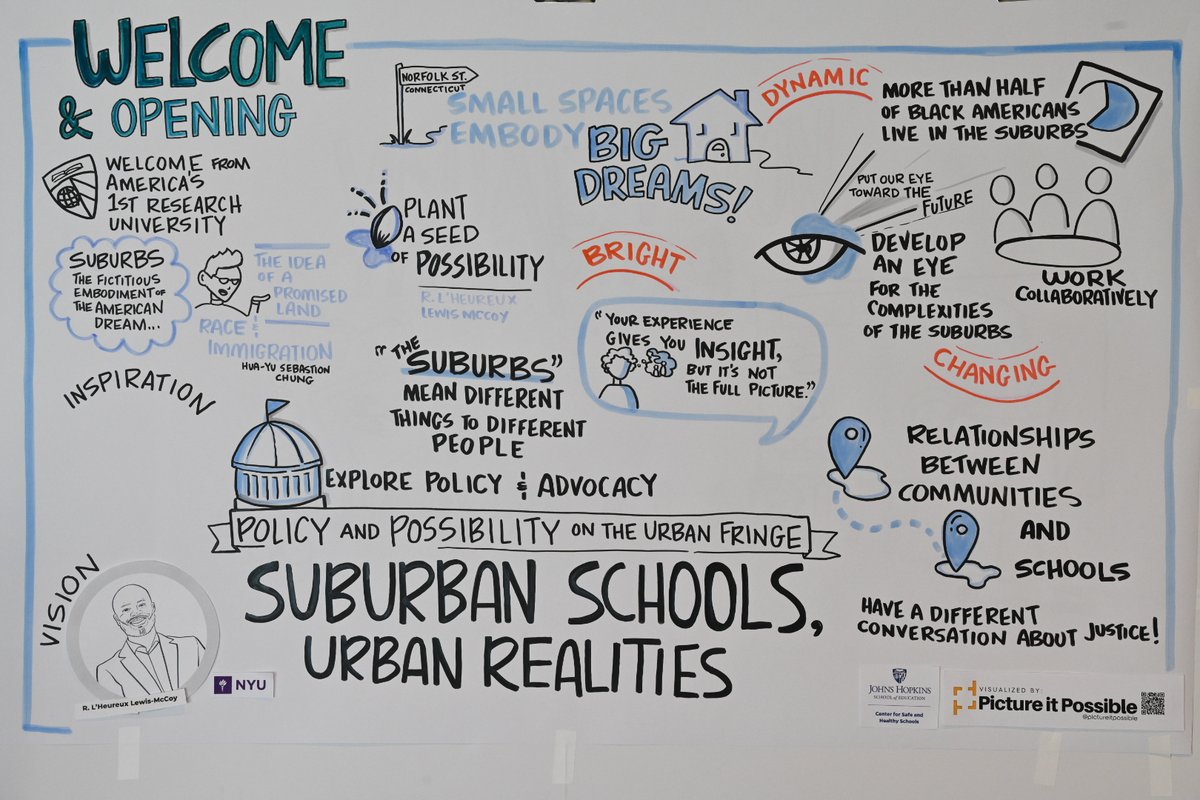 WELCOME
& OPENING
WELCOME FROM
AMERICA'S
1ST RESEARCH
UNIVERSITY
SUBURBS
THE FICTITIOUS
EMBODIMENT OF
THE AMERICAN
DREAM...
THE IDEA
OF A
PROMISED
LAND
RACE &
IMMIGRATION
HUA-YU SEBASTION
CHUNG
INSPIRATION
NORFOLK ST.
CONNECTICUT
SMALL SPACES
EMBODY
BIG
DREAMS!
PLANT
A SEED
OF POSSIBILITY
R. L'HEUREUX
LEWIS MCCOY
"THE
SUBURBS"
MEAN DIFFERENT
THINGS TO DIFFERENT
PEOPLE
BRIGHT
"YOUR EXPERIENCE
GIVES YOU INSIGHT,
BUT IT'S NOT
THE FULL PICTURE."
DYNAMIC
MORE THAN HALF
OF BLACK AMERICANS
LIVE IN THE SUBURBS
PUT OUR EYE
TOWARD THE
FUTURE
DEVELOP
AN EYE
FOR THE
COMPLEXITIES
OF THE SUBURBS
WORK
COLLABORATIVELY
CHANGING
RELATIONSHIPS
BETWEEN
COMMUNITIES
AND
SCHOOLS
HAVE A DIFFERENT
CONVERSATION ABOUT JUSTICE!
EXPLORE POLICY & ADVOCACY
POLICY AND POSSIBILITY ON THE URBAN FRINGE
SUBURBAN SCHOOLS,
URBAN REALITIES
VISION
R. L'Heureux Lewis-McCoy
NYU
JOHNS HOPKINS
SCHOOL of EDUCATION
Center for Safe and
Healthy Schools
VISUALIZED BY:
Picture it Possible
@pictureitpossible